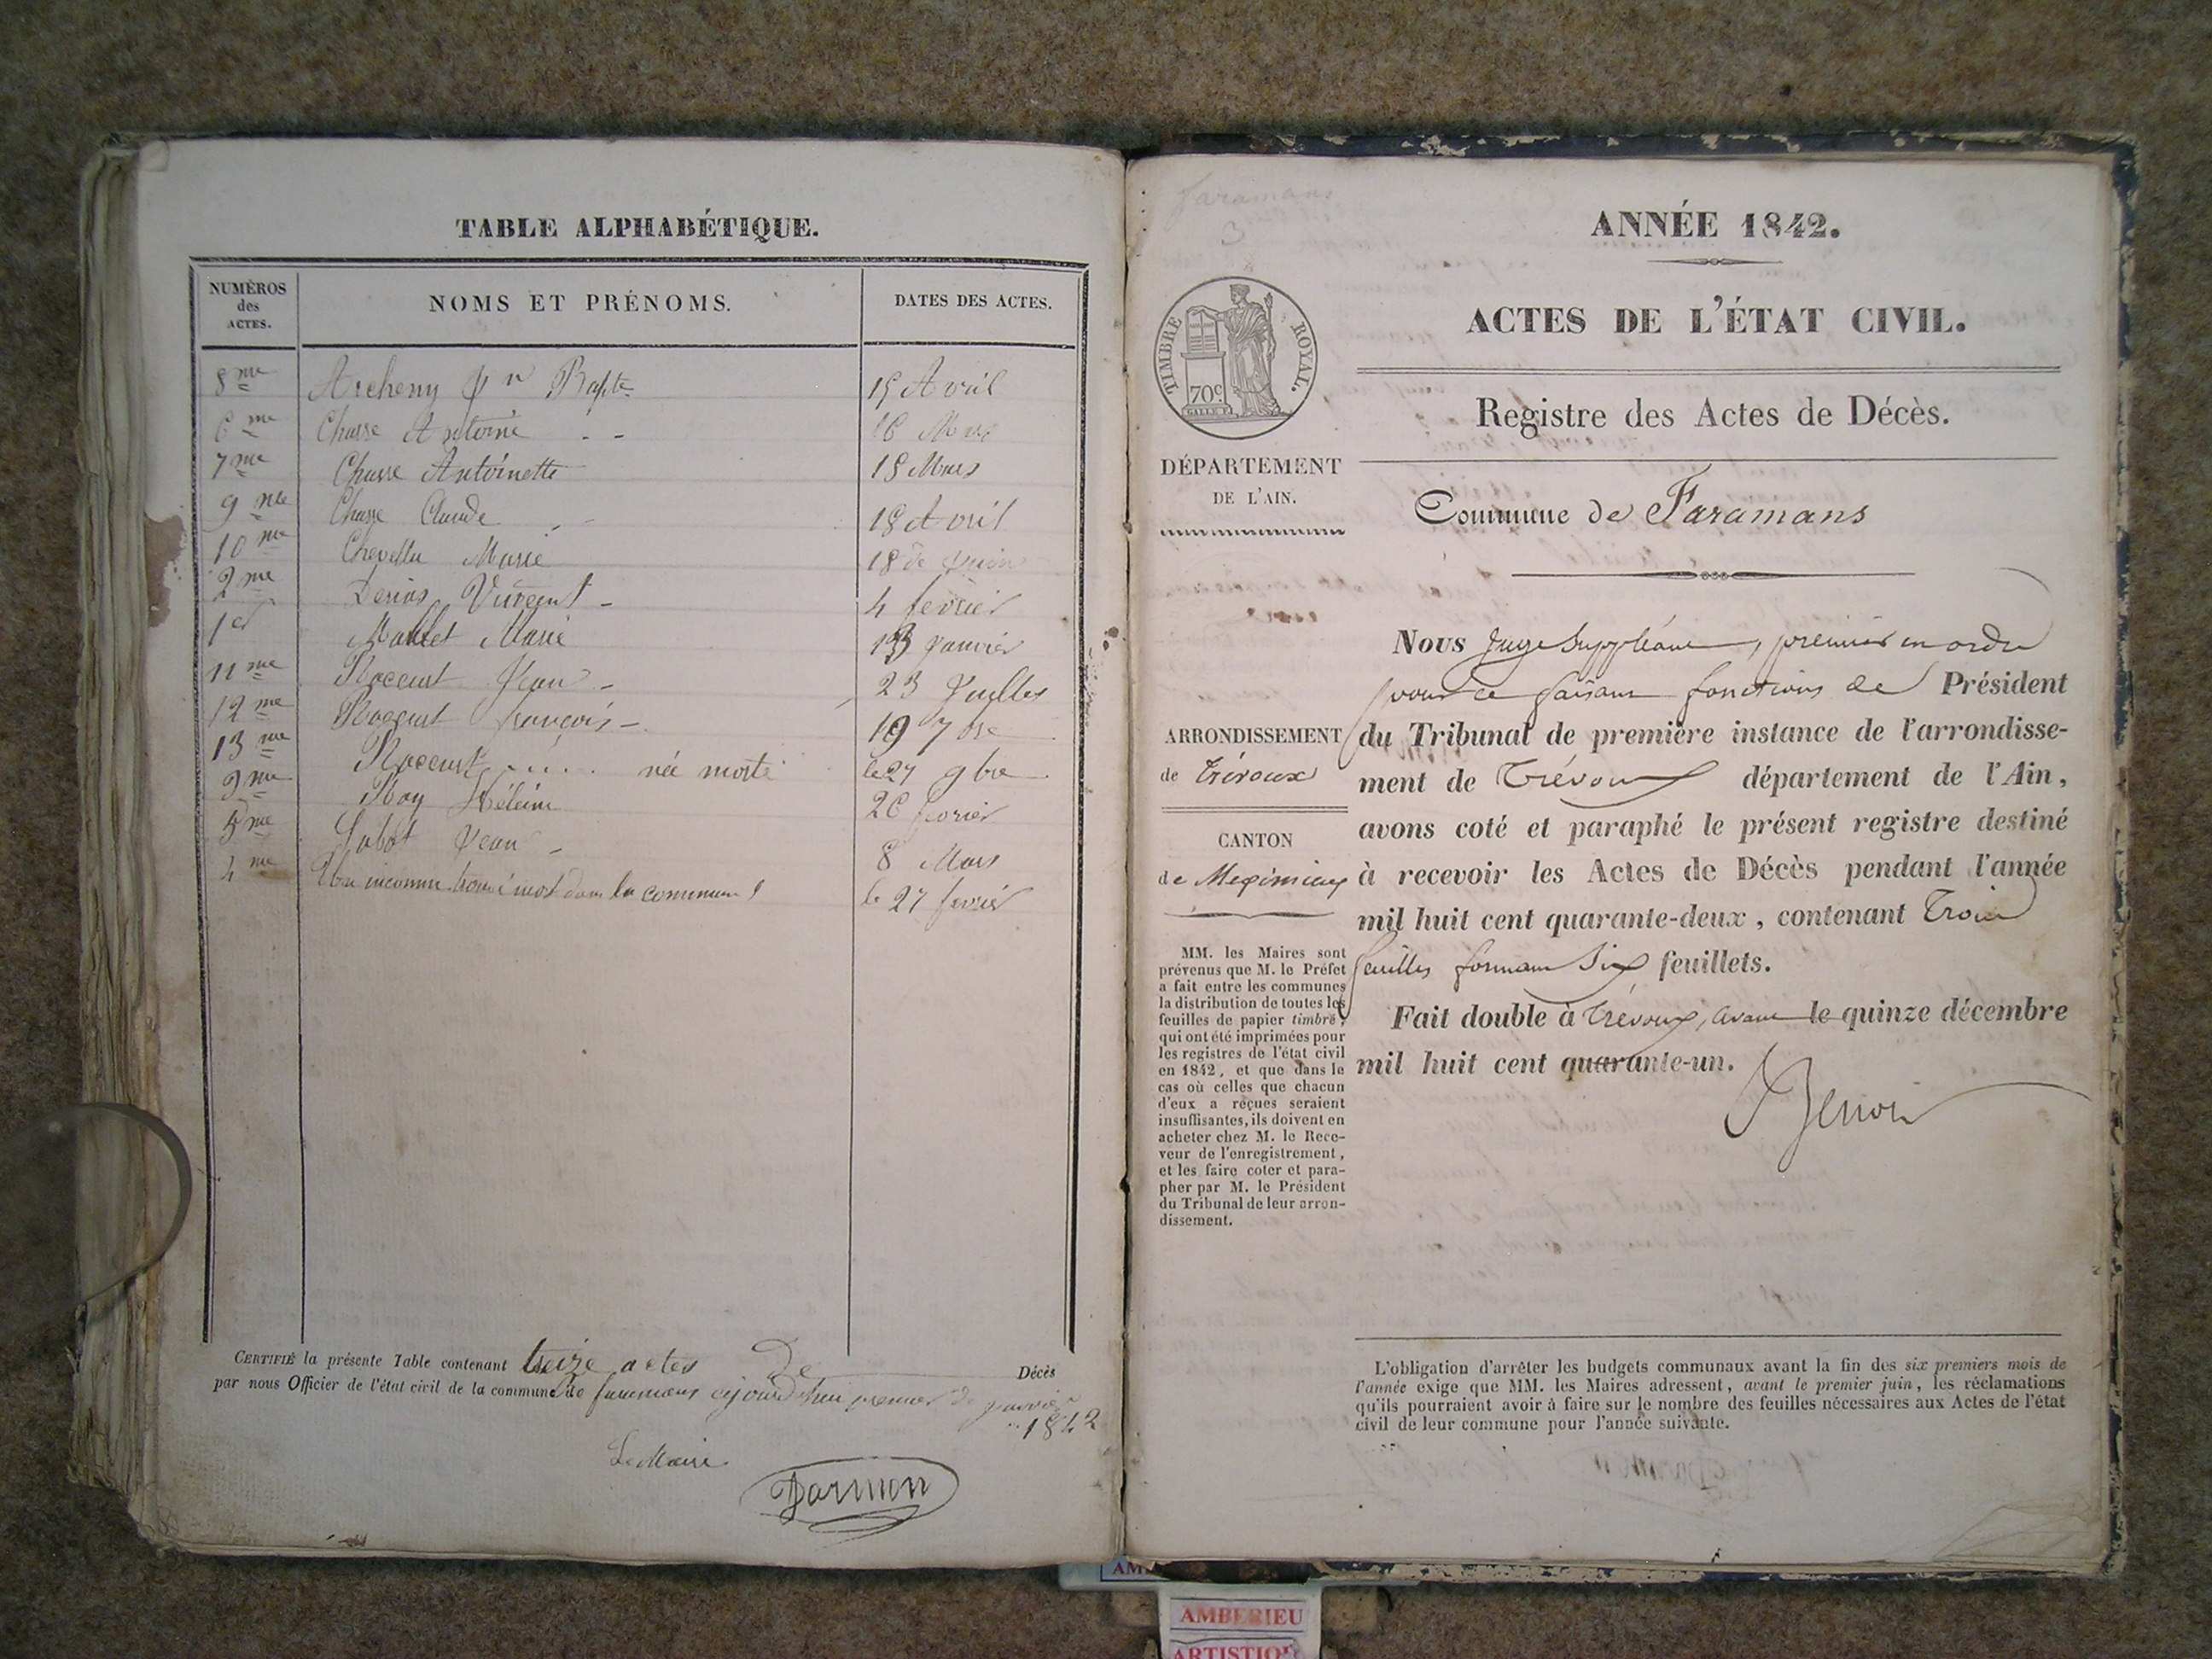 TABLE ALPHABÉTIQUE.
NUMÉROS des ACTES.
NOMS ET PRÉNOMS.
DATES DES ACTES.
8me Archeny Jn Bapte 15 Avril
6me Chasse Antoine - - 16 Mars
7me Chasse Antoinette 18 Mars
9me Chasse Claude - - 18 Avril
10me Marie 18 de Juin
2me Vincent - 4 fevrier
1er Marie 13 Janvier
11me Roccurt Jean - 23 Juillet
12me Roccurt françois - 19 7bre
13me Roccurt ..... née morte le 27 9bre
3me Roy Hélène 26 fevrier
5me Sabot Jean - 8 Mars
4me Un inconnu trouvé mort dans la commune le 27 fevrier
CERTIFIÉ la présente Table contenant treize actes De Décès
par nous Officier de l'état civil de la commune de faramans cejourd'hui premier de janvier
1842
Le Maire
Darmon
faramans
3
ANNÉE 1842.
ACTES DE L'ÉTAT CIVIL.
TIMBRE ROYAL.
70c
Registre des Actes de Décès.
DÉPARTEMENT
DE L'AIN.
Commune de Faramans
Nous Juge Suppléant, premier en ordre
pour ce faisant fonctions de Président
du Tribunal de première instance de l'arrondisse-
ment de Trévoux département de l'Ain,
avons coté et paraphé le présent registre destiné
à recevoir les Actes de Décès pendant l'année
mil huit cent quarante-deux, contenant Trois
feuilles formant Six feuillets.
Fait double à Trévoux, avant le quinze décembre
mil huit cent quarante-un.
ARRONDISSEMENT
de Trévoux
CANTON
de Meximieux
MM. les Maires sont
prévenus que M. le Préfet
a fait entre les communes
la distribution de toutes les
feuilles de papier timbré,
qui ont été imprimées pour
les registres de l'état civil
en 1842, et que dans le
cas où celles que chacun
d'eux a reçues seraient
insuffisantes, ils doivent en
acheter chez M. le Rece-
veur de l'enregistrement,
et les faire coter et para-
pher par M. le Président
du Tribunal de leur arron-
dissement.
L'obligation d'arrêter les budgets communaux avant la fin des six premiers mois de
l'année exige que MM. les Maires adressent, avant le premier juin, les réclamations
qu'ils pourraient avoir à faire sur le nombre des feuilles nécessaires aux Actes de l'état
civil de leur commune pour l'année suivante.
AMBERIEU
ARTISTIQUE